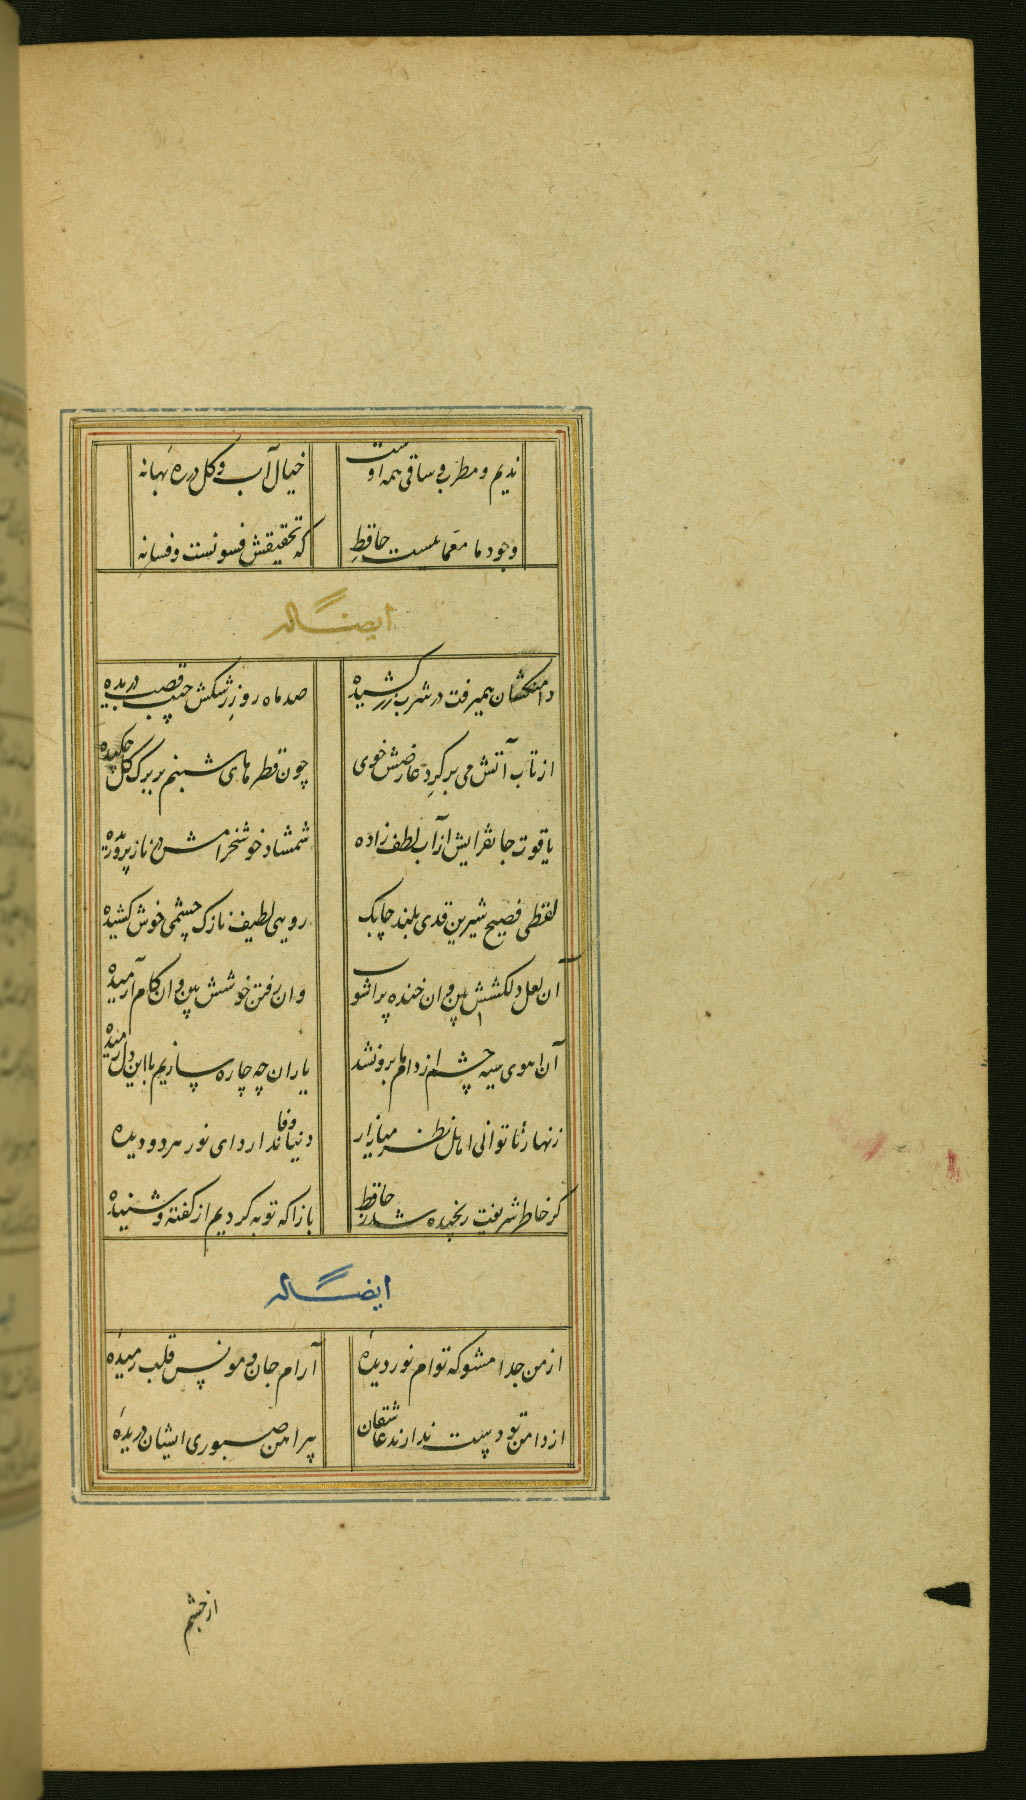 ندیم و مطرب و ساقی همه اوست خیال آب و گل در ره بهانه
وجود ما معمائیست حافظ که تحقیقش فسونست و فسانه
ایضاً له
دامنکشان همیرفت در شرب زر کشیده صد ماه رو ز رشکش جیب قصب دریده
از تاب آتش می بر گرد عارضش خوی چون قطرهای شبنم بر برک کل چکیده
یاقوت جانفزایش از آب لطف زاده شمشاد خوشخرامش در ناز پروریده
لفظی فصیح شیرین قدی بلند چابک رویی لطیف نازک چشمی خوش کشیده
آن لعل دلکشش بین وان خنده پر اشوب وان رفتن خوشش بین وان کام آرمیده
آن اهوی سیه چشم از دام ما برون شد یاران چه چاره سازیم با این دل رمیده
زنهار تا توانی اهل نظر میازار دنیا وفا ندارد ای نور هر دو دیده
کر خاطر شریفت رنجیده شد ز حافظ بازا که توبه کردیم از کفته و شنیده
ایضاً له
از من جدا مشو که توام نور دیدهٔ آرام جان و مونس قلب رمیدهٔ
از دامن تو دست ندارند عاشقان پیراهن صبوری ایشان دریدهٔ
از چشم